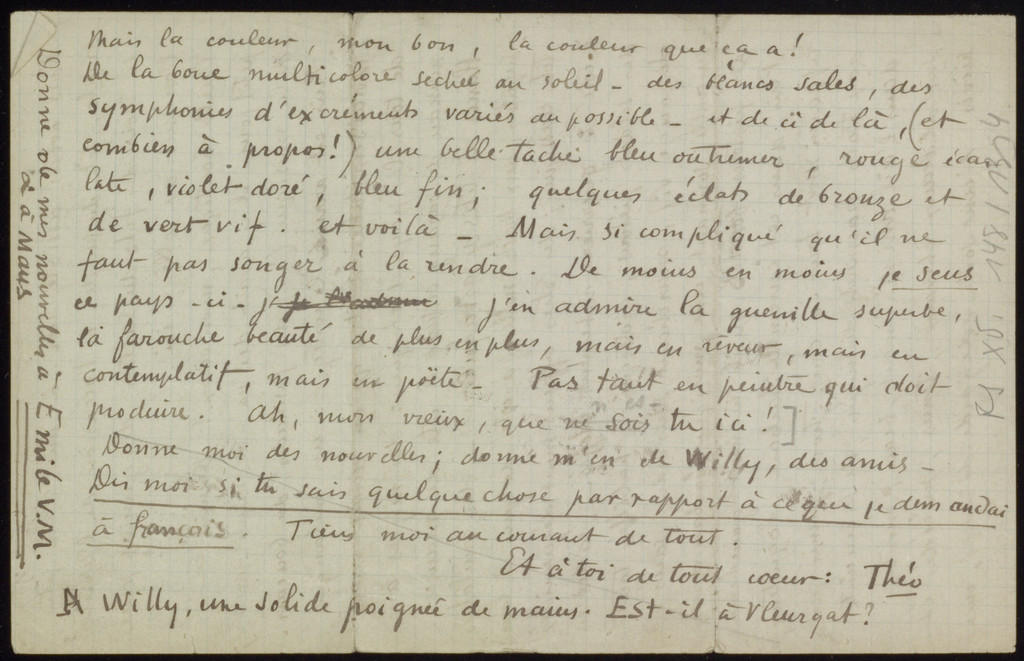 Mais la couleur, mon bon, la couleur que ça a!
De la boue multicolore sechée au soleil - des blancs sales, des
symphonies d'excréments variés au possible - et de ci de là, (et
combien à propos!) une belle tache bleu outremer, rouge écar
late, violet doré, bleu fin; quelques éclats de bronze et
de vert vif. et voilà - Mais si compliqué qu'il ne
faut pas songer à la rendre. De moins en moins je sens
ce pays-ci - j'en admire la guenille superbe,
la farouche beauté de plus en plus, mais en rêveur, mais en
contemplatif, mais en poëte - Pas tant en peintre qui doit
produire. Ah, mon vieux, que ne sois tu ici!]
n'es-
Donne moi des nouvelles; donne m'en de Willy, des amis -
Dis moi si tu sais quelque chose par rapport à ce que je demandai
à françois. Tiens moi au courant de tout.
Et à toi de tout coeur: Théo
À Willy, une solide poignée de mains. Est-il à Vleurgat?
Donne de mes nouvelles à Emile V.M.
& à Maus
XV. 148/1324